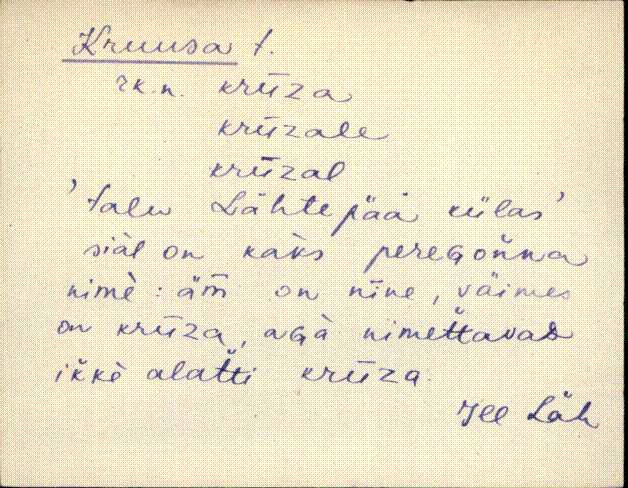 Kruusa t.
rk.n. krūza
krūzale
krūzal
'talu Lähtepää külas'
siàl on kàks pereGoǹna
nimè: äm̄ on nīne, väimes
on krūza, aGà nimetťavaD
ikkè alaťti krūza.
Jee Läh